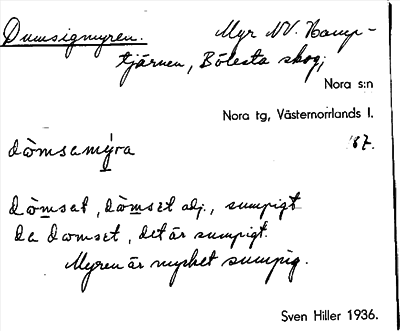 Dumsigmyren. Myr NV. Hamp-
tjärnen, Bölesta skog;
Nora s:n
Nora tg, Västernorrlands l.
dömsamýra 167.
dömsat, dömset adj., sumpigt
Da domset, det är sumpigt.
Myren är mycket sumpig.
Sven Hiller 1936.